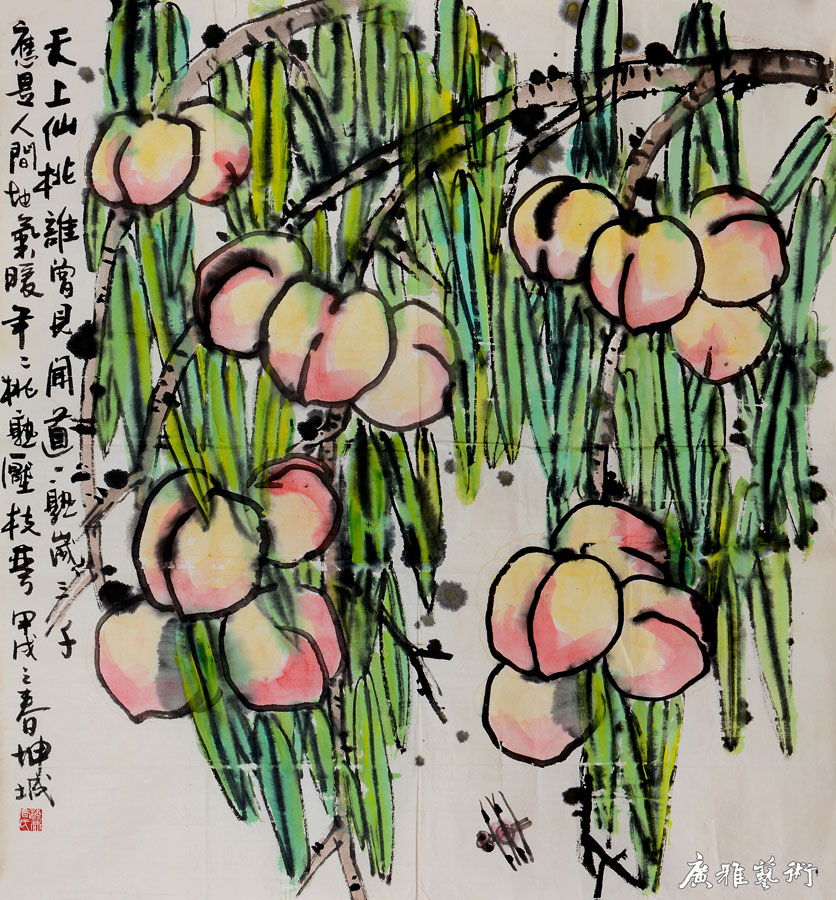 天上仙桃誰曾見聞道一熟歲三千
應是人間地氣暖年々桃熟壓枝彎甲戌之春坤城
廣雅藝術